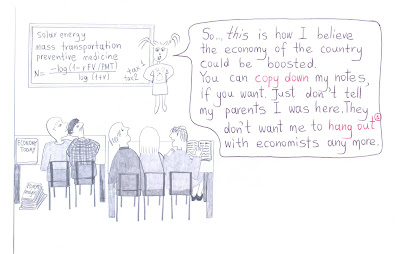 Solar energy
mass transportation
preventive medicine
N= -log(1-rFV/PMT)
log (1+r)
tax 1
tax 2
So... this is how I believe
the economy of the country
could be boosted.
You can copy down my notes,
if you want. Just don't tell
my parents I was here. They
don't want me to hang out
with economists any more.
ECONOMY
TODAY